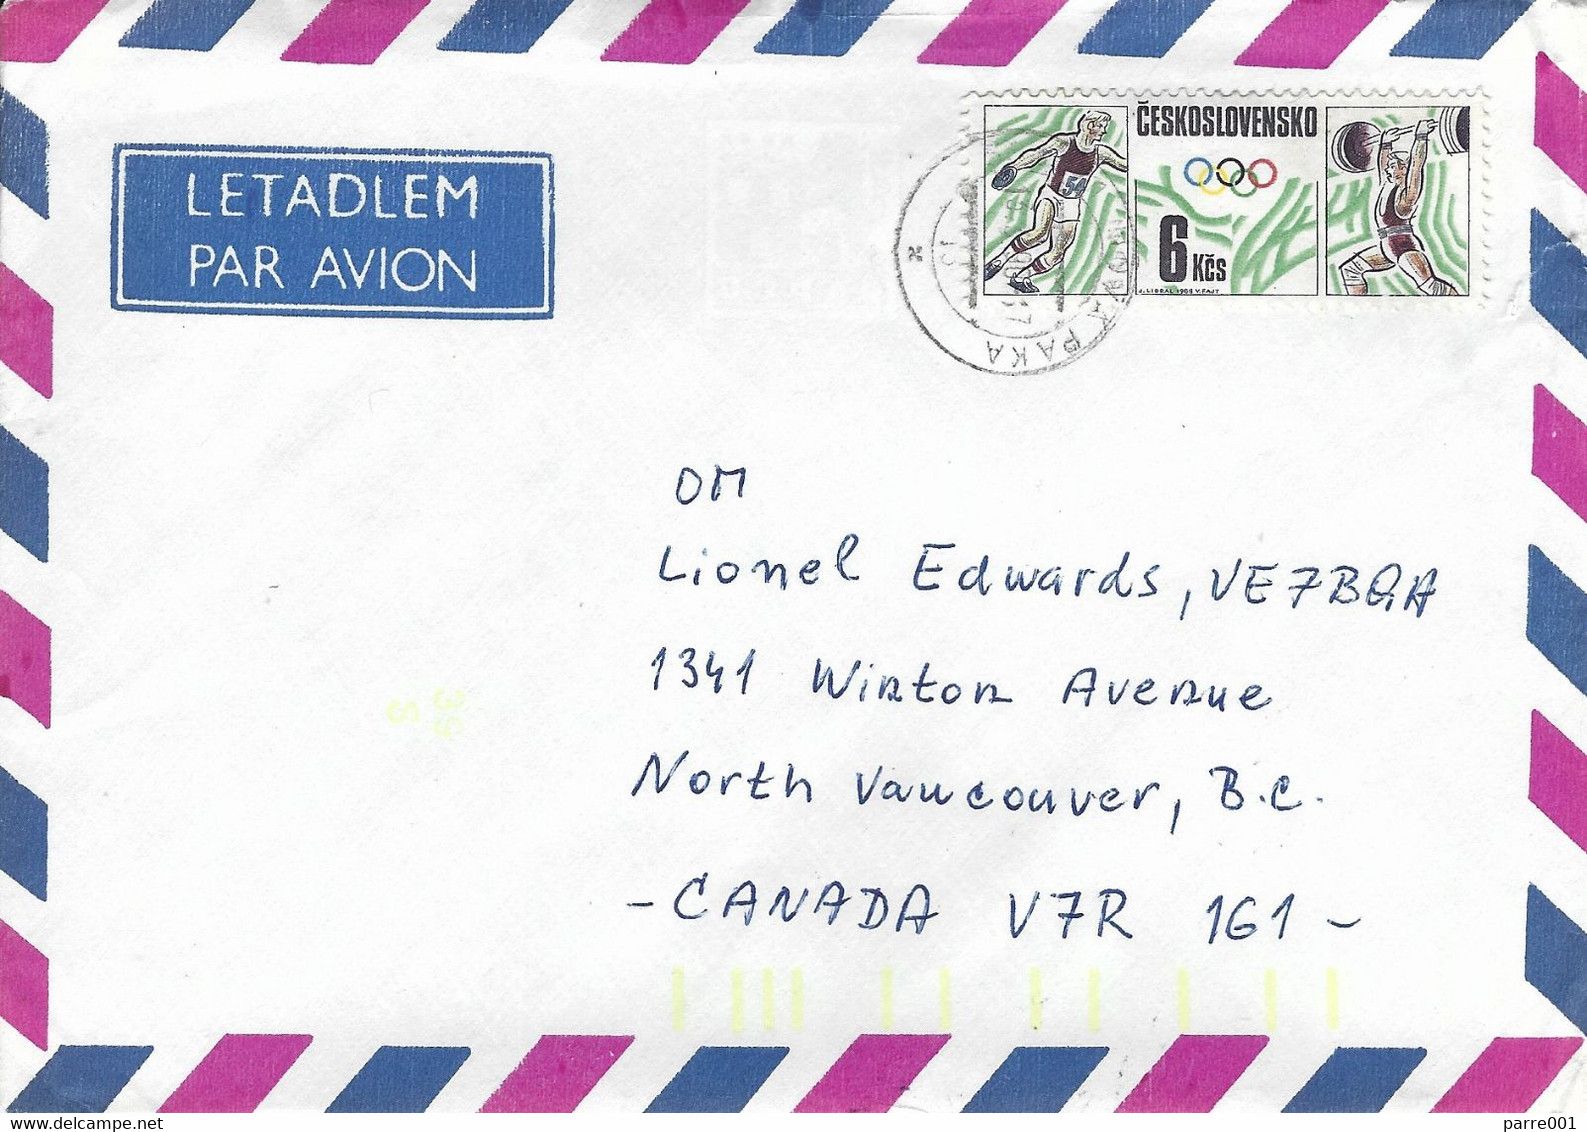 LETADLEM
PAR AVION
ČESKOSLOVENSKO
54
6 Kčs
J. LIESLER 1988 V. FAJT
PAKA
OM
Lionel Edwards, VE7BQA
1341 Winton Avenue
North Vancouver, B.C.
- CANADA V7R 1G1 -
www.delcampe.net
parre001